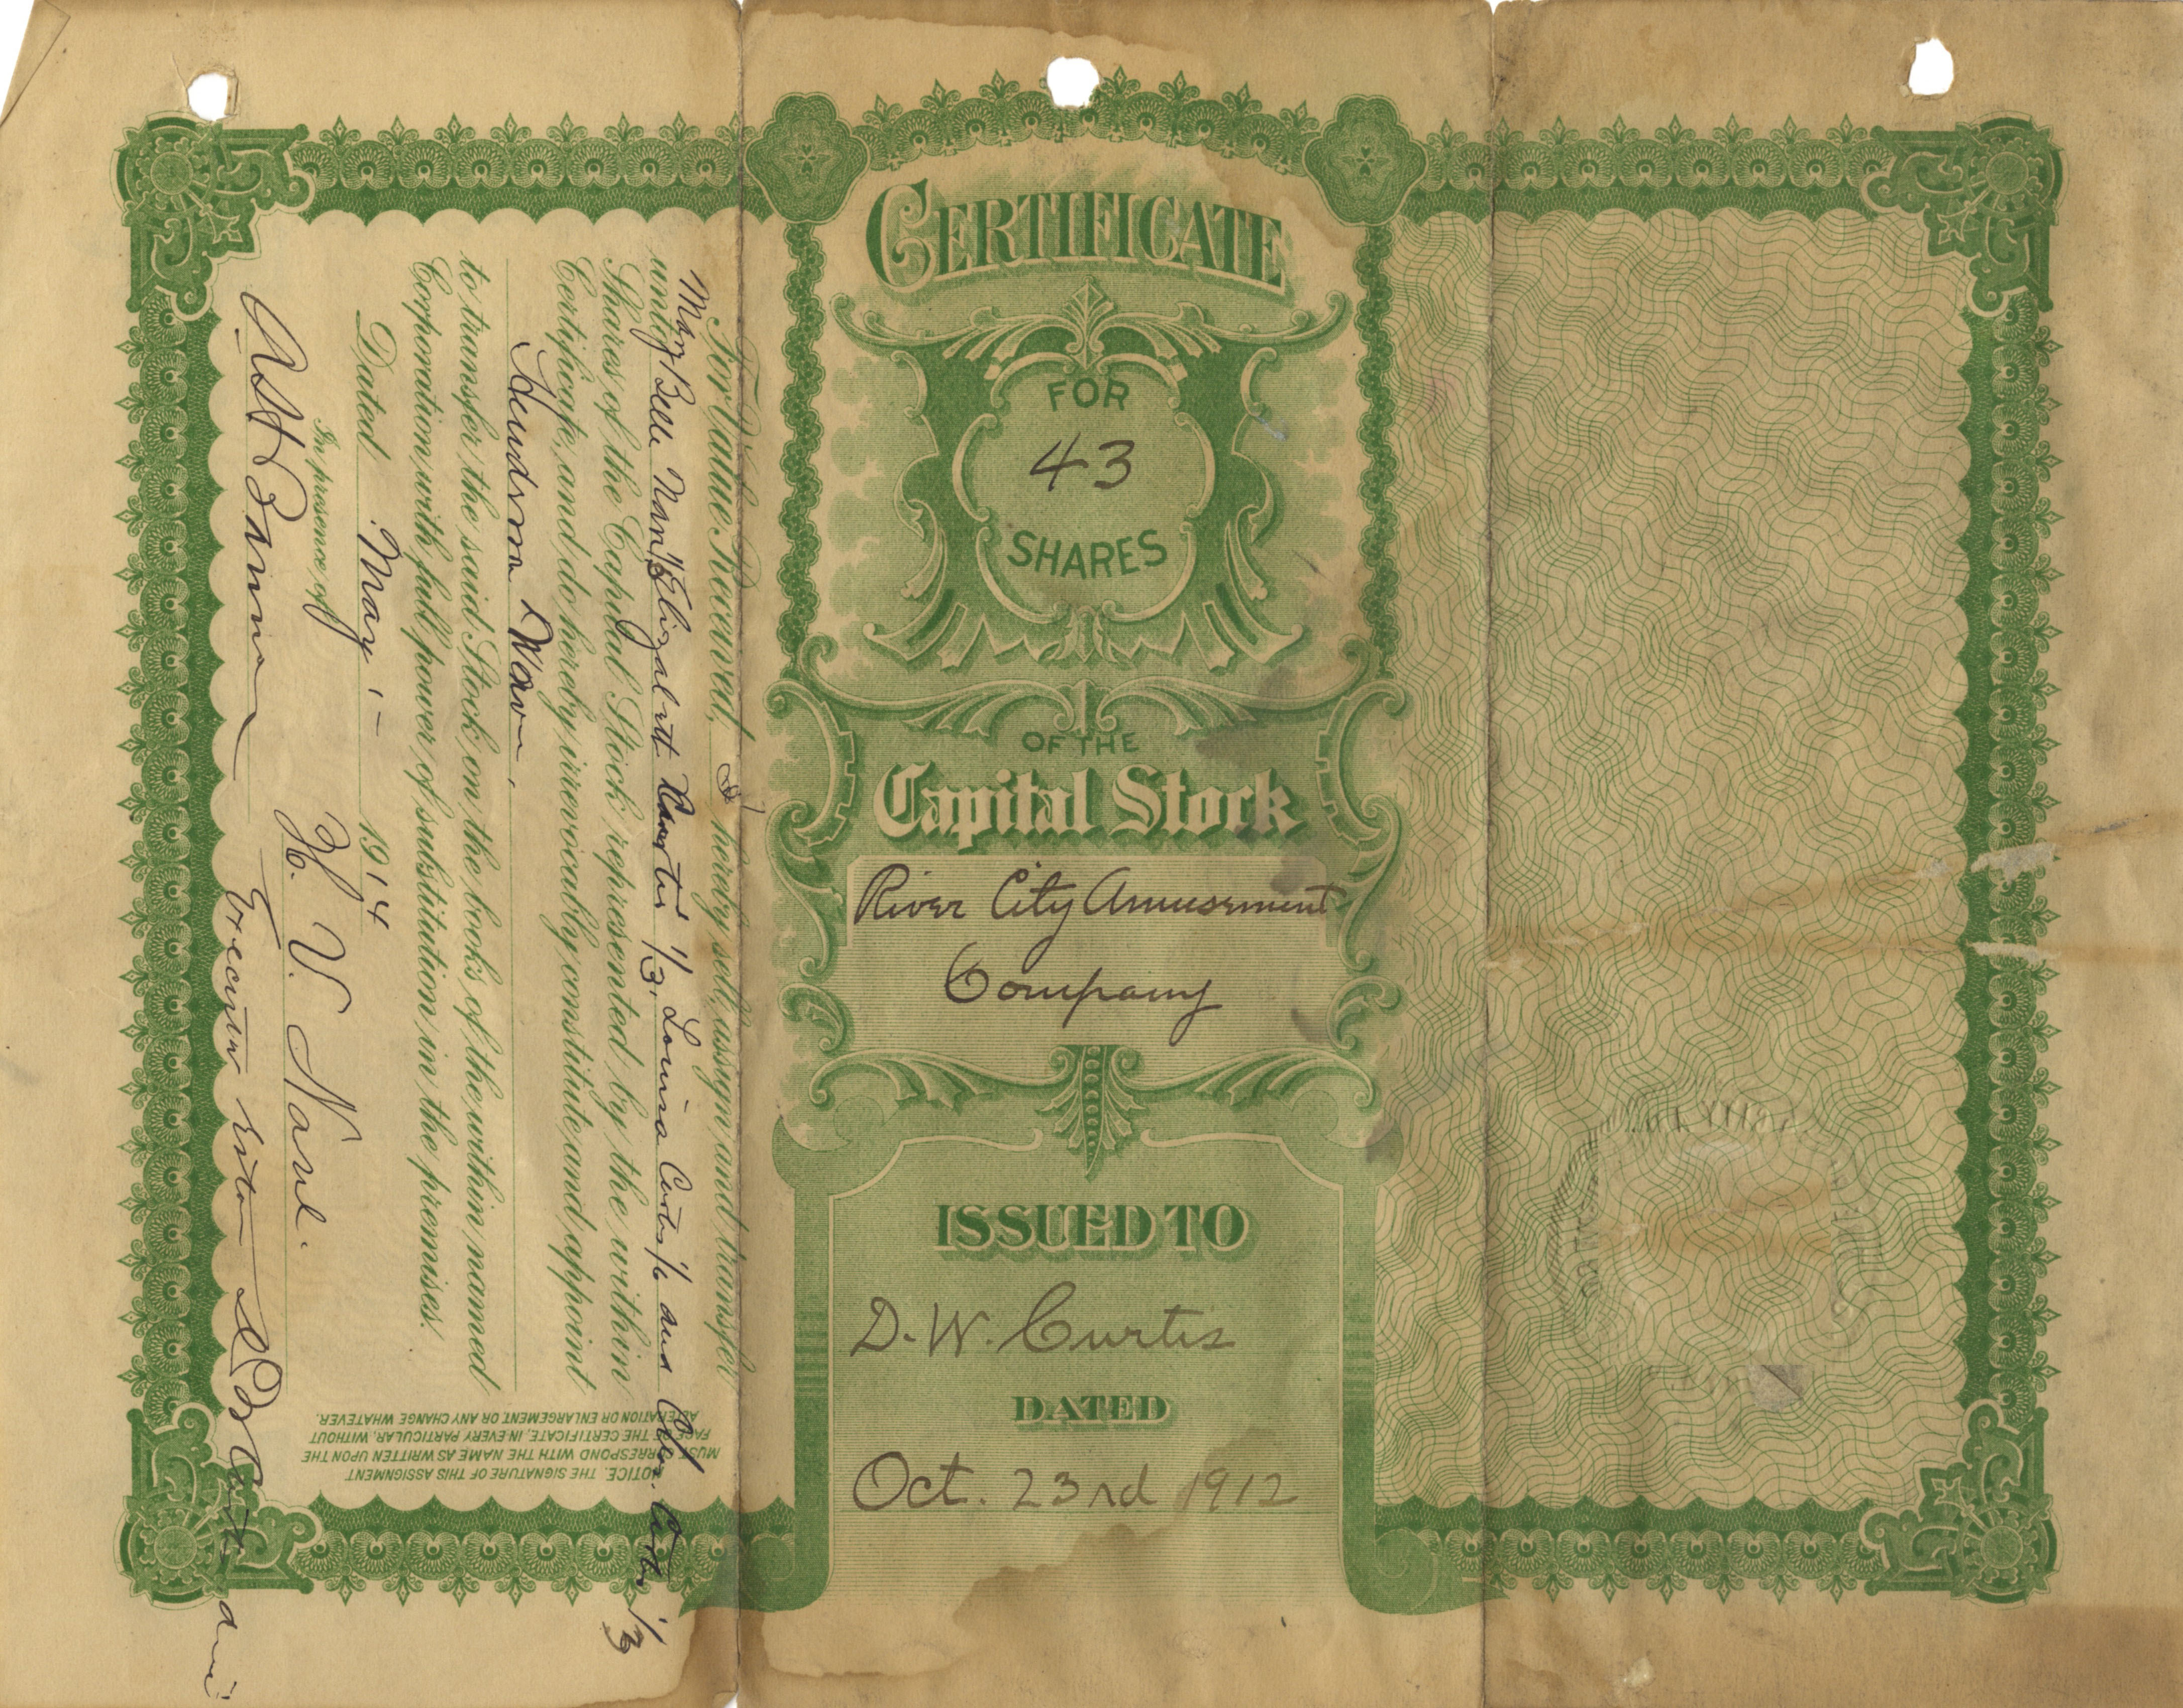 CERTIFICATE
FOR
43
SHARES
OF THE
Capital Stock
River City Amusement
Company
ISSUED TO
D. W. Curtis
DATED
Oct. 23rd 1912
For Value Received, I hereby sell, assign and transfer
unto Mary Belle 1/3 Elizabeth 1/3, Louisa Curtis 1/6 and Curtis 1/3
Shares of the Capital Stock represented by the within
Certificate, and do hereby irrevocably constitute and appoint
to transfer the said Stock on the books of the within named
Corporation with full power of substitution in the premises.
Dated May 1 - 1914
In presence of
H. V.
Executor
NOTICE. THE SIGNATURE OF THIS ASSIGNMENT
MUST CORRESPOND WITH THE NAME AS WRITTEN UPON THE
FACE OF THE CERTIFICATE, IN EVERY PARTICULAR, WITHOUT
ALTERATION OR ENLARGEMENT OR ANY CHANGE WHATEVER.